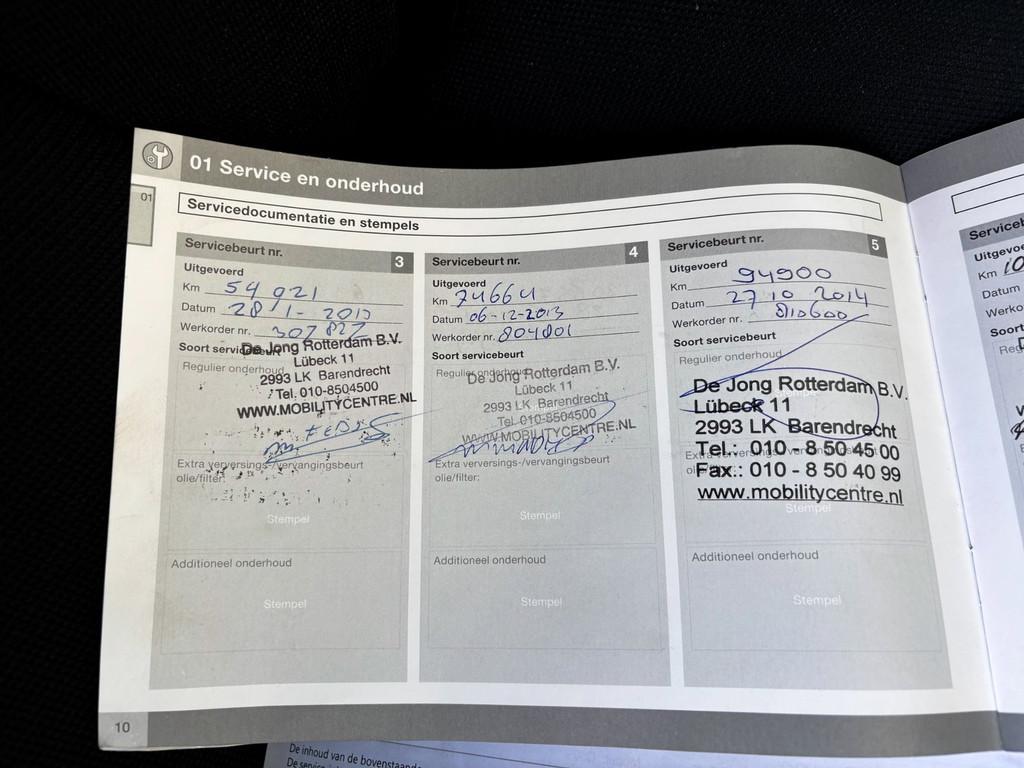 01 Service en onderhoud
01
Servicedocumentatie en stempels
Servicebeurt nr. 3
Uitgevoerd
Km 54 021
Datum 28/1-2013
Werkorder nr. 307827
Soort servicebeurt
Regulier onderhoud
De Jong Rotterdam B.V.
Lübeck 11
2993 LK Barendrecht
Tel. 010-8504500
WWW.MOBILITYCENTRE.NL
Extra verversings-/vervangingsbeurt
olie/filter:
Stempel
Additioneel onderhoud
Stempel
Servicebeurt nr. 4
Uitgevoerd
Km 74664
Datum 06-12-2013
Werkorder nr. 804001
Soort servicebeurt
Regulier onderhoud
De Jong Rotterdam B.V.
Lübeck 11
2993 LK Barendrecht
Tel. 010-8504500
WWW.MOBILITYCENTRE.NL
Extra verversings-/vervangingsbeurt
olie/filter:
Stempel
Additioneel onderhoud
Stempel
Servicebeurt nr. 5
Uitgevoerd
Km 94900
Datum 27 10 2014
Werkorder nr. 810600
Soort servicebeurt
Regulier onderhoud
De Jong Rotterdam B.V.
Lübeck 11
2993 LK Barendrecht
Tel.: 010 - 8 50 45 00
Fax.: 010 - 8 50 40 99
www.mobilitycentre.nl
Stempel
Additioneel onderhoud
Stempel
10
Uitgevoe
Km
Datum
De inhoud van de bovenstaand